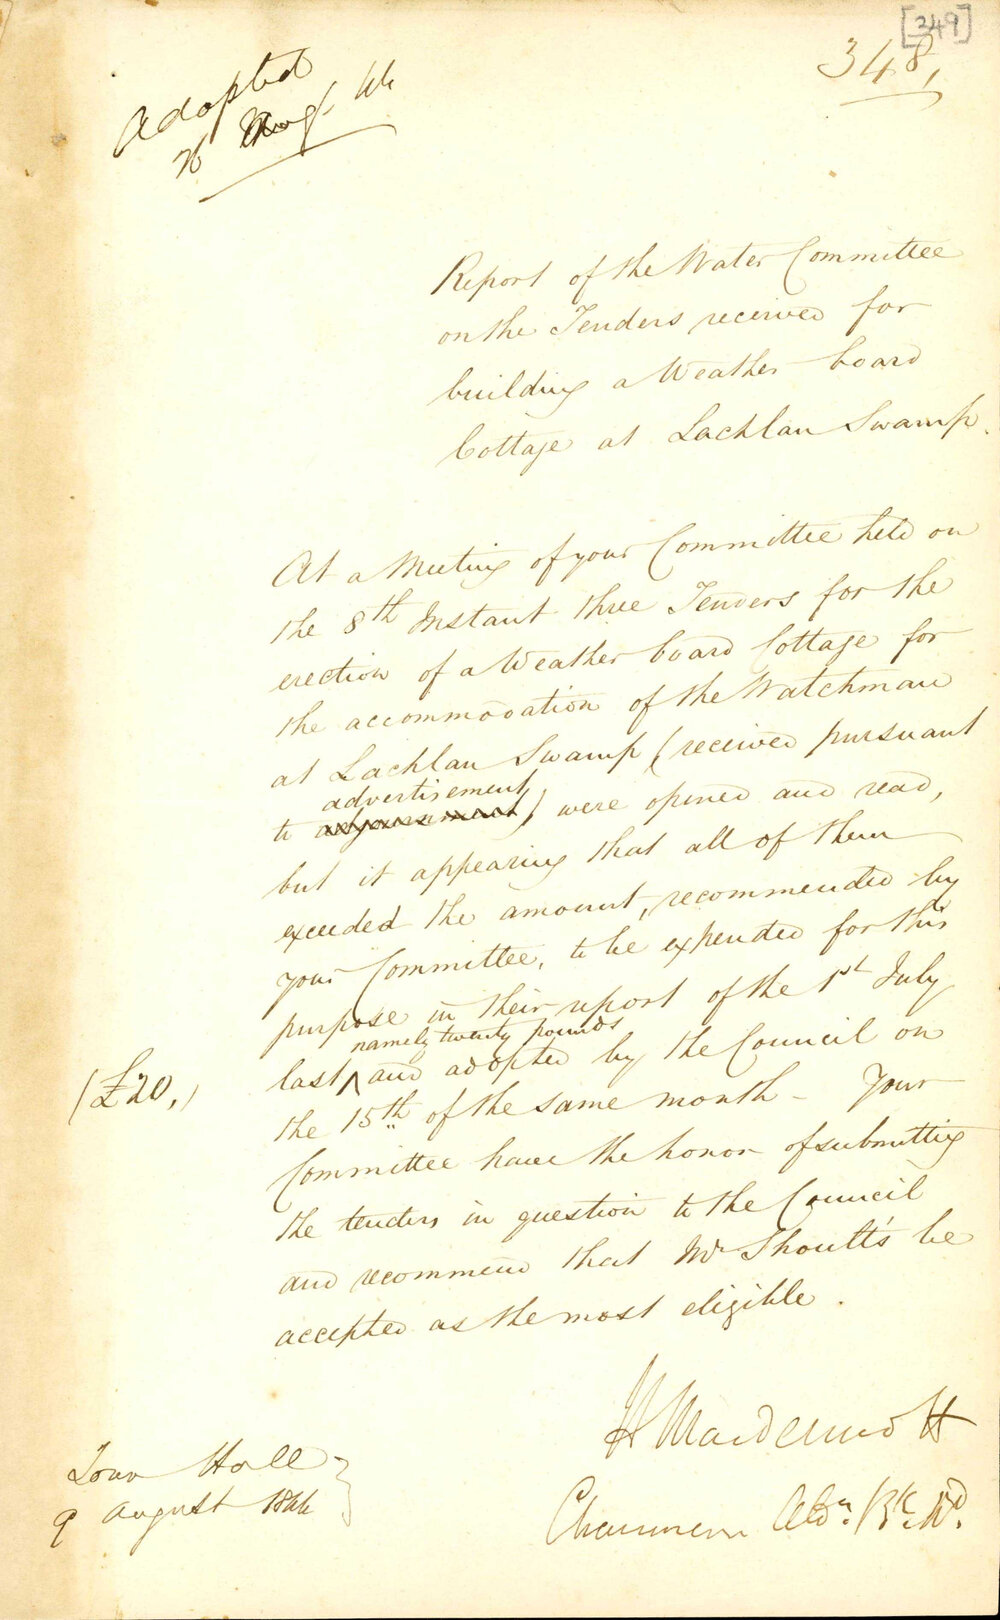 [349]
348,
Adopted
26 Augt. 44
Report of the Water Committee
on the Tenders received for
building a Weather board
Cottage at Lachlan Swamp.
At a Meeting of your Committee held on
the 8th Instant three Tenders for the
erection of a Weather board Cottage for
the accommodation of the Watchman
at Lachlan Swamp (received pursuant
advertisement
to adjournment) were opened and read,
but it appearing that all of them
exceeded the amount, recommended by
your Committee, to be expended for this
purpose in their report of the 1st July
namely twenty pounds
(£20,) last ^ and adopted by the Council on
the 15th of the same month - Your
Committee have the honor of submitting
the tenders in question to the Council
and recommend that Mr Shoutt's be
accepted as the most eligible.
H Macdermott
Chairman Ald
Town Hall
9 August 1844